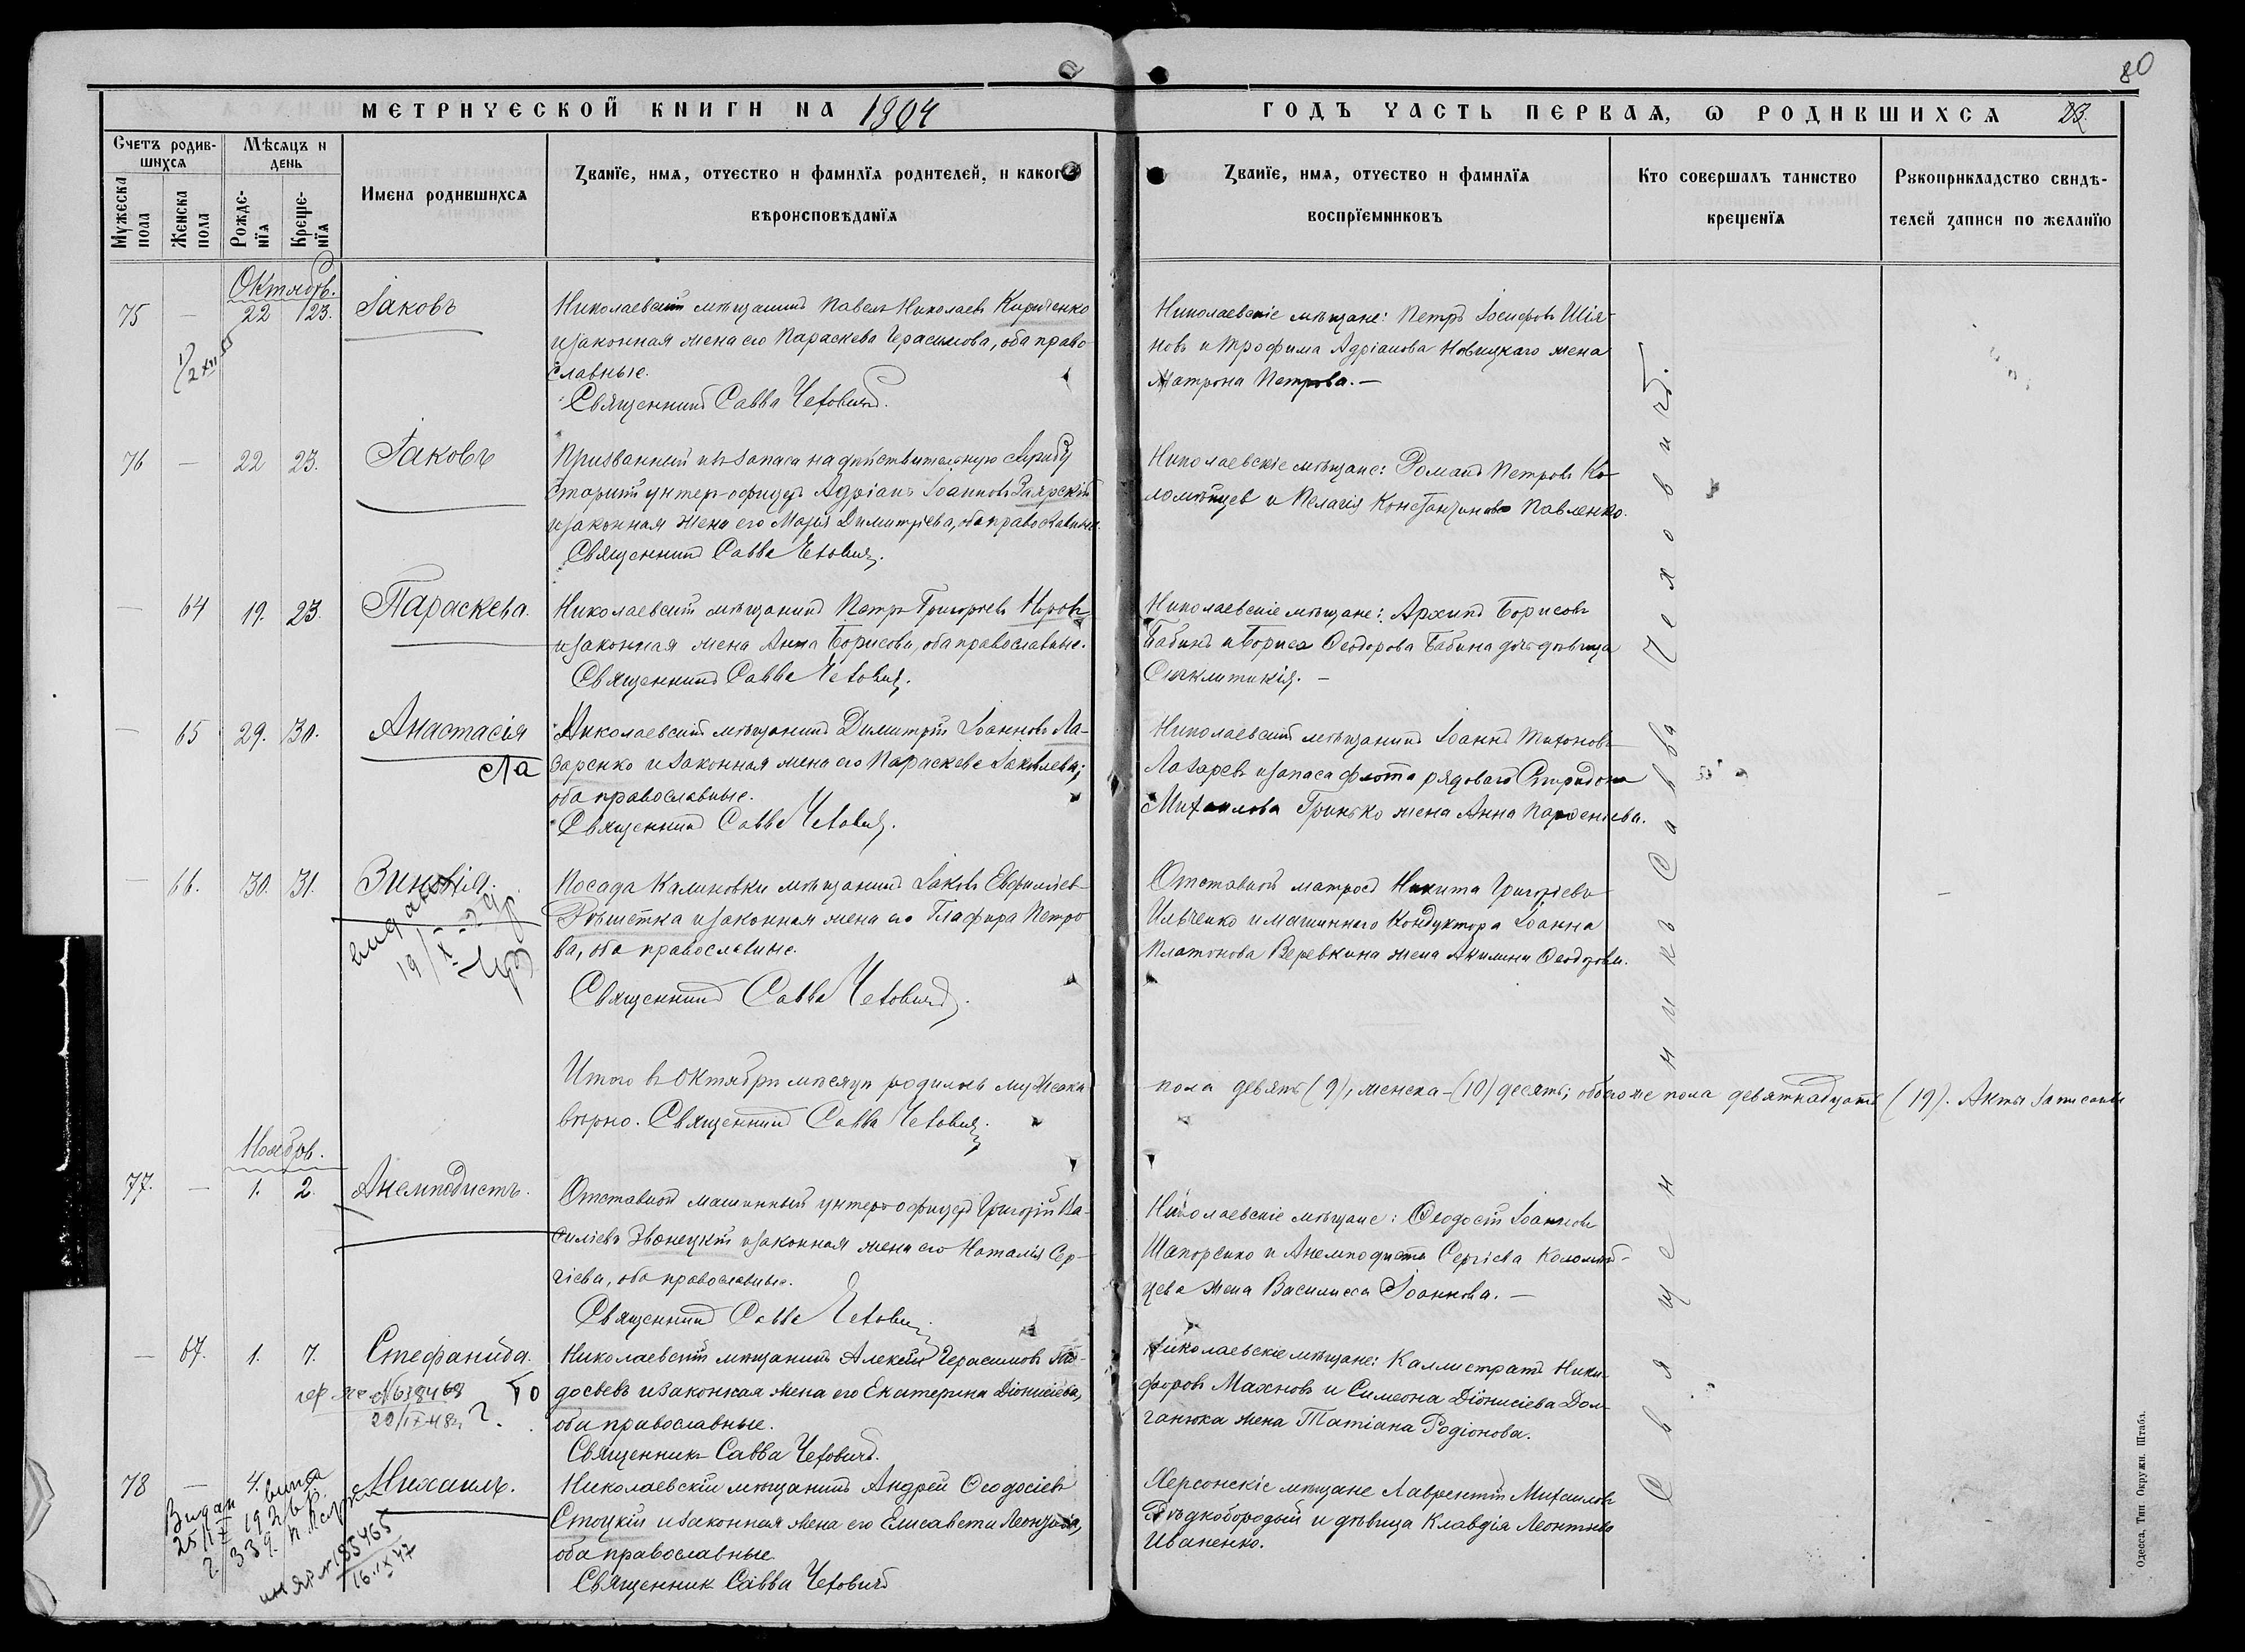 80
МЕТРИЧЕСКОЙ КНИГИ НА 1904
ГОДЪ ЧАСТЬ ПЕРВАЯ, Ѡ РОДИВШИХСЯ 23.
Счетъ родив-
шихся
Мѣсяцъ и
день
Мужеска пола
Женска пола
Рожде-
нїя
Креще-
нїя
Имена родившихся
Званїе, имя, отчество и фамилїя родителей, и какого
вѣроисповѣданїя
Званїе, имя, отчество и фамилїя
воспрїемниковъ
Кто совершалъ таинство
крещенїя
Рукоприкладство свидѣ-
телей записи по желанїю
Октябрь.
75 — 22 23. Іаковъ
Николаевскій мѣщанинъ Павелъ Николаевъ Кириченко
и законная жена его Параскева Герасимова, оба право-
славные.
Священникъ Савва Чеховичъ.
Николаевскіе мѣщане: Петръ Іосифовъ Шія-
новъ и Трофима Адріанова Новицкаго жена
Матрона Петрова. —
76 — 22 23. Іаковъ
Призванный изъ запаса на дѣйствительную службу
старшій унтеръ-офицеръ Адріанъ Іоанновъ Заярскій
и законная жена его Марія Димитріева, оба православные.
Священникъ Савва Чеховичъ.
Николаевскіе мѣщане: Романъ Петровъ Ко-
ломѣйцев и Пелагія Константинова Павленко.
— 64 19. 23. Параскева.
Николаевскій мѣщанинъ Петръ Григорьевъ
и законная жена Анна Борисова, оба православные.
Священникъ Савва Чеховичъ.
Николаевскіе мѣщане: Архипъ Борисовъ
Бабинъ и Бориса Ѳеодорова Бабина дочь дѣвица
Синклитикія. —
— 65 29. 30. Анастасія
Николаевскій мѣщанинъ Димитрій Іоанновъ Ла-
заренко и законная жена его Параскева Іаковлева;
оба православные.
Священникъ Савва Чеховичъ.
Николаевскій мѣщанинъ Іоаннъ Тихоновъ
Лазаревъ и запаса флота рядового Спиридона
Михаилова Гринько жена Анна Парѳеніева.
— 66. 30. 31. Зиновія.
19/X-29р
Посада Калиновки мѣщанинъ Іаковъ Евфиміевъ
Рѣшетка и законная жена его Глафира Петро
ва, оба православные.
Священникъ Савва Чеховичъ.
Отставной матросъ Никита Григоріевъ
Ильченко и машиннаго кондуктора Іоанна
Платонова Веревкина жена Акилина Ѳеодорова.
Итого въ октябрѣ мѣсяцѣ родилось мужеска
пола девять (9), женска - (10) десять; обоего же пола девятнадцать (19). Акты записаны
вѣрно. Священникъ Савва Чеховичъ.
Ноябрь.
77. — 1. 2. Анемподистъ.
Отставной машинный унтеръ-офицеръ Григорій Ва-
силіевъ Звонецкій и законная жена его Наталія Сер-
гіева, оба православные.
Священникъ Савва Чеховичъ
Николаевскіе мѣщане: Ѳеодосій Іоанновъ
Шапоренко и Анемподиста Сергіева Коломій-
цева жена Василисса Іоаннова. —
— 67. 1. 7. Стефанида.
Николаевскій мѣщанинъ Алексій Герасимовъ
досьевъ и законная жена его Екатерина Діонисіева,
оба православные.
Священникъ Савва Чеховичъ.
Николаевскіе мѣщане: Каллистратъ Ники-
форовъ Махновъ и Симеона Діонисіева Дол-
ганюка жена Татіана Родіонова.
78 — 4. Михаилъ.
Николаевскій мѣщанинъ Андрей Ѳеодосіевъ
Стоцкій и законная жена его Елисавета Леонтьева,
оба православные.
Священникъ Савва Чеховичъ
Херсонскіе мѣщане Лаврентій Михаиловъ
Рѣдкобородый и дѣвица Клавдія Леонтьева
Иваненко.
Видан
16.IX 47
Священникъ Савва Чеховичъ.
Одесса, Тип. Окружн. Штаба.